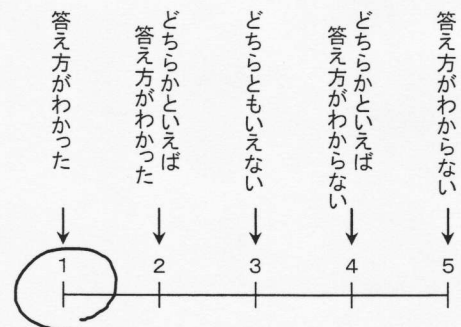 答え方がわかった
どちらかといえば
答え方がわかった
どちらともいえない
どちらかといえば
答え方がわからない
答え方がわからない
1 2 3 4 5